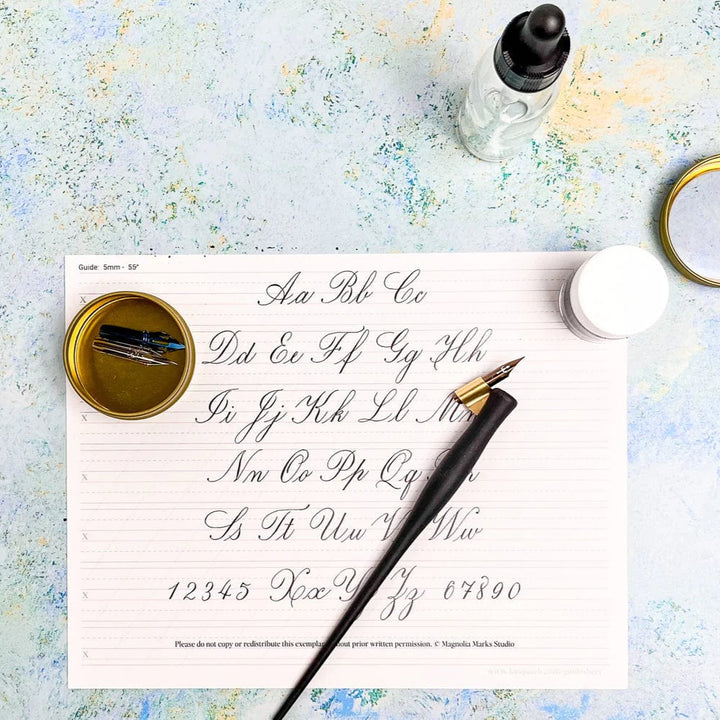 Guide: 5mm - 55°
X Aa Bb Cc
Dd Ee Ff Gg Hh
X Ii Jj Kk Ll
X Nn Oo Pp Qq
X Ss Tt Uu Ww
X 12345 Xx Zz 67890
Please do not copy or redistribute this exemplar without prior written permission. © Magnolia Marks Studio
X